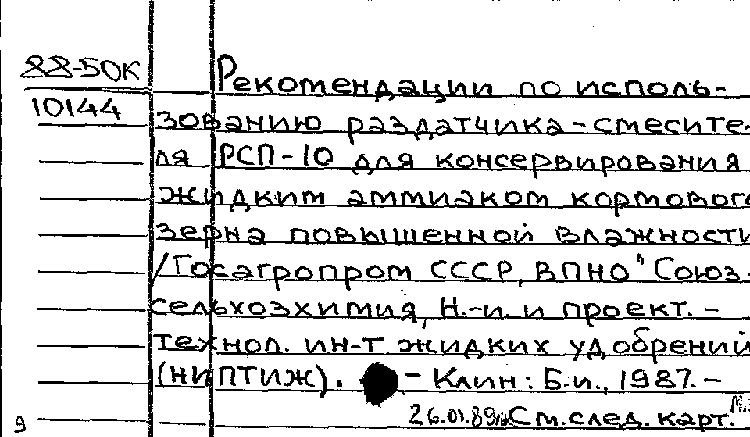 88-50К
10144
Рекомендации по исполь-
зованию раздатчика-смесите-
ля РСП-10 для консервирования
жидким аммиаком кормового
зерна повышенной влажности
/Госагропром СССР, ВПНО "Союз-
сельхозхимия, Н.-и. и проект.-
технол. ин-т жидких удобрений
(НИПТИЖ). - Клин: Б.и., 1987.-
26.01.89 См. след. карт.
9